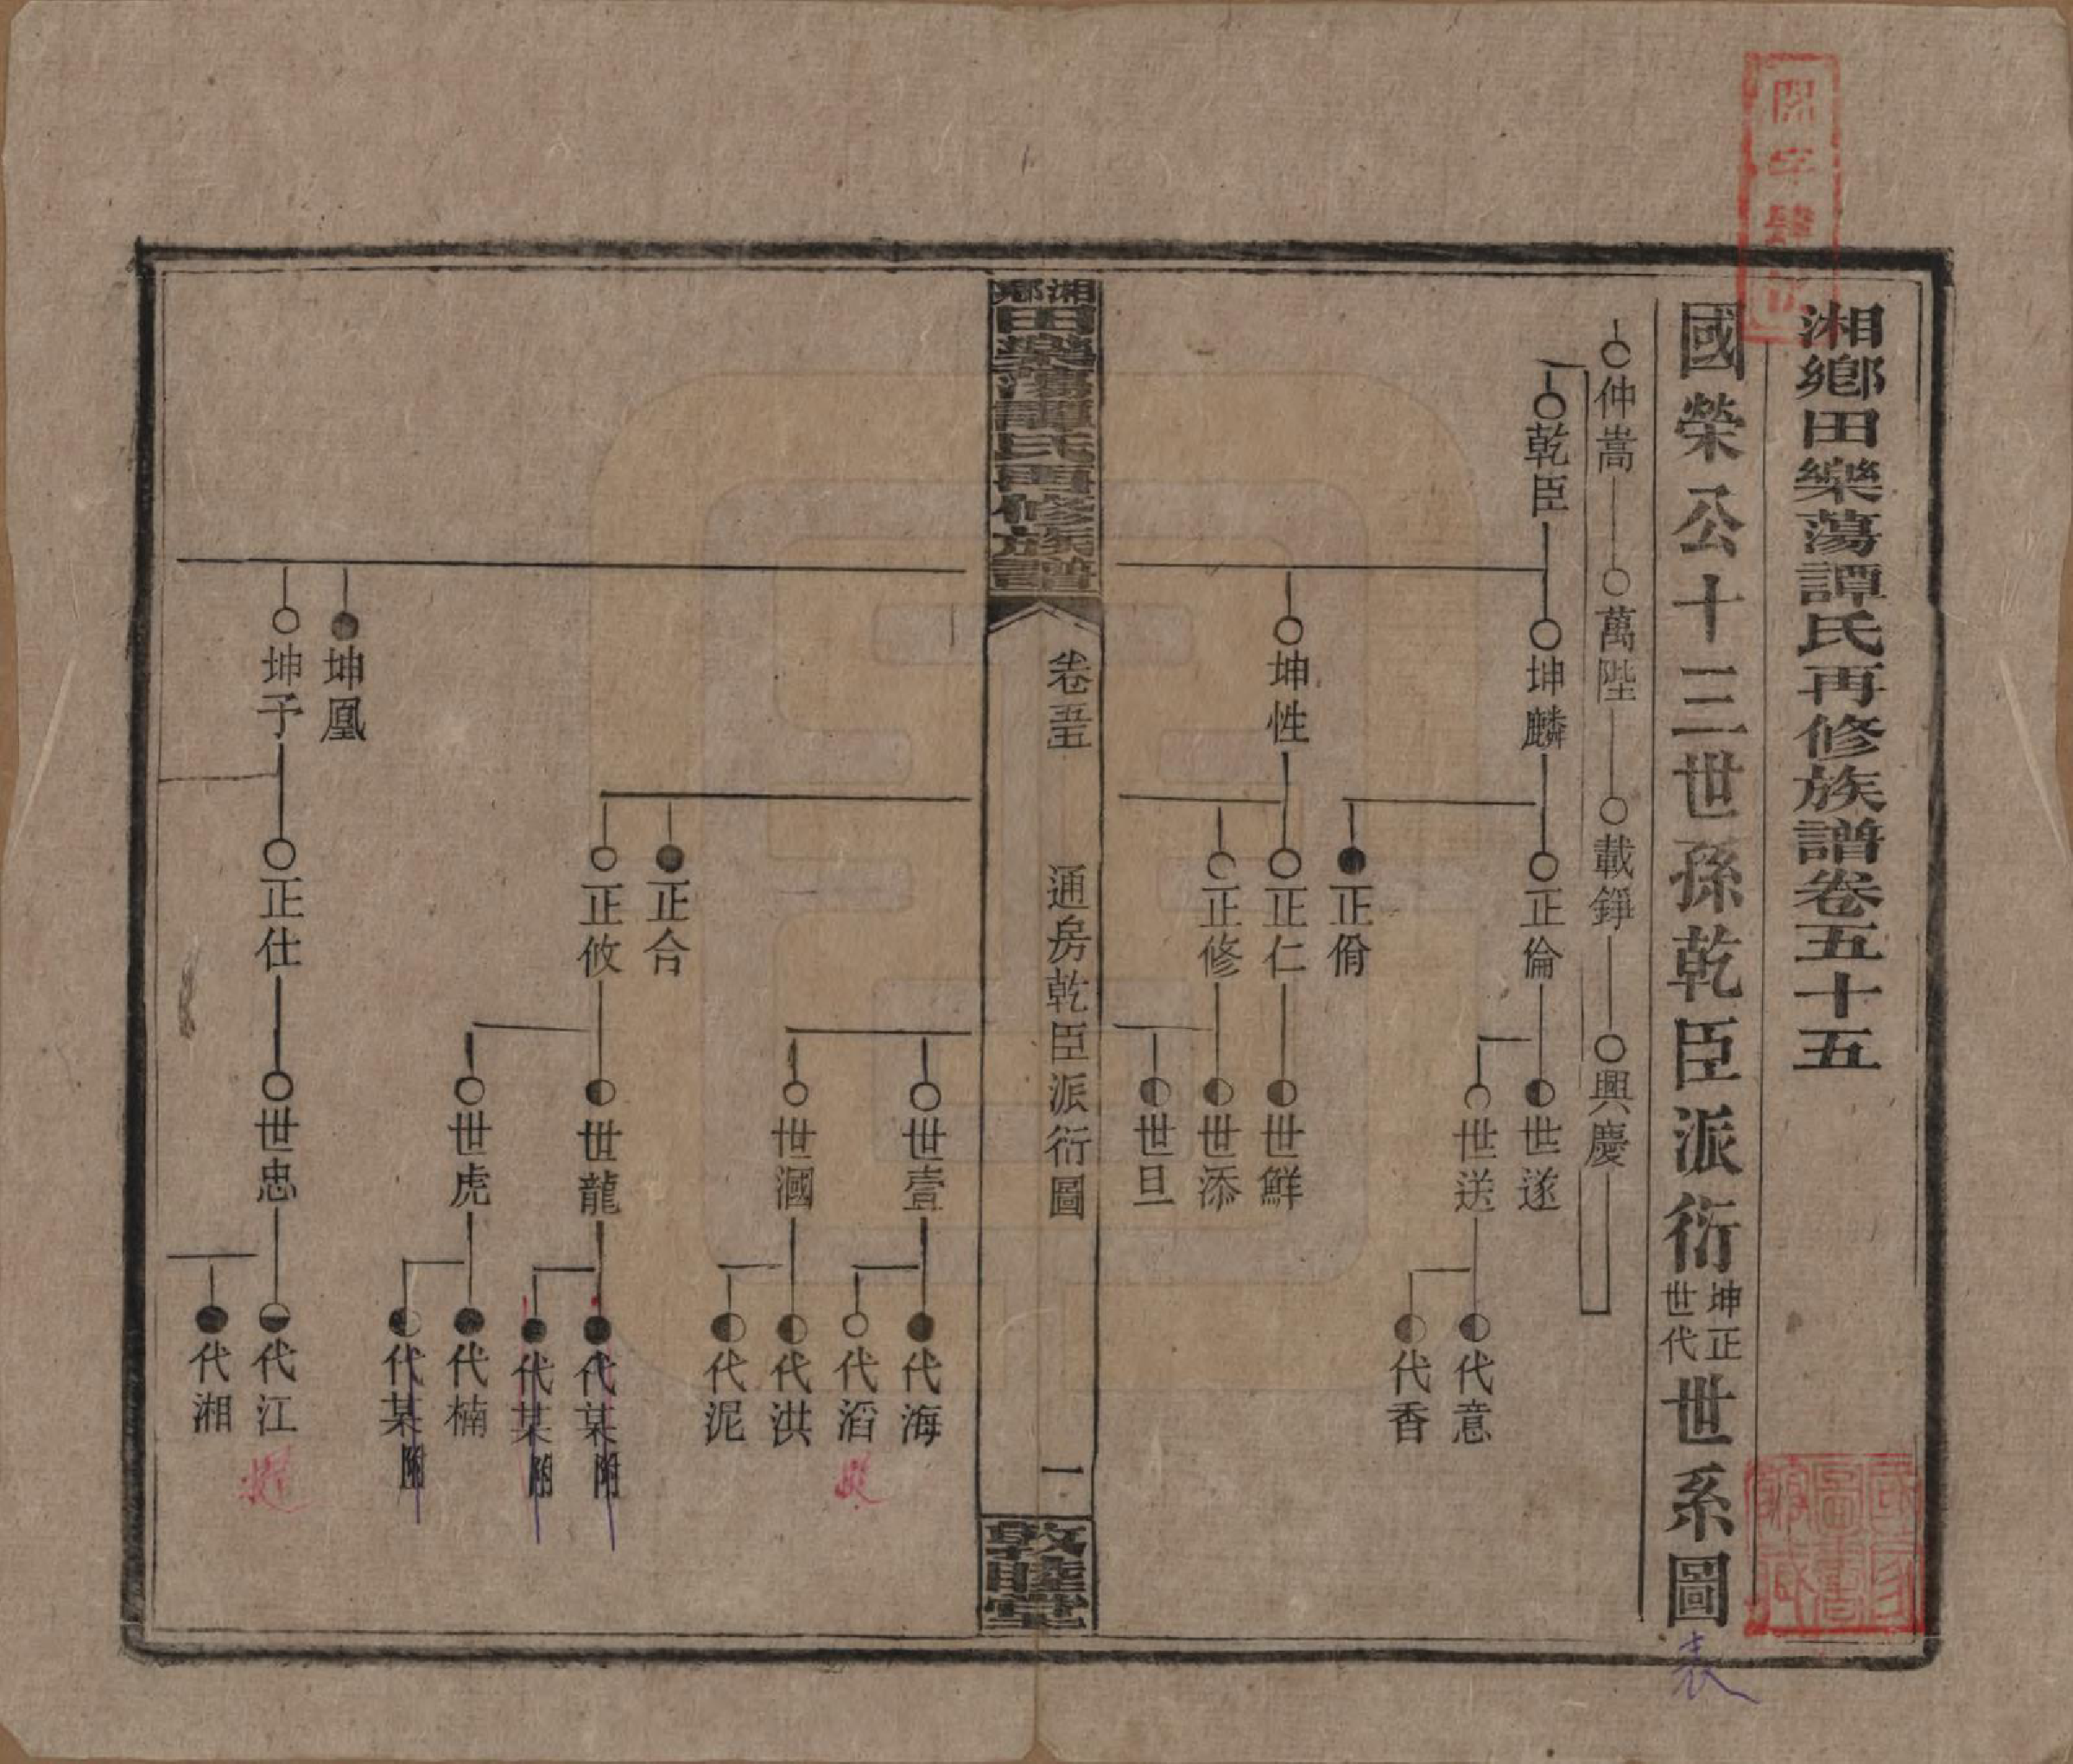 湘鄉田樂蕩譚氏再修族譜卷五十五
國榮公十三世孫乾臣派衍坤正世代世系圖
仲嵩 萬陛 載錚 興慶
乾臣
坤麟
正倫
世遂
世送
代意
代香
正脩
坤性
正仁
世鮮
正修
世添
世旦
湘鄉田樂蕩譚氏再修族譜
卷五五
通房乾臣派衍圖
一
敦睦堂
世壹
代海
代滔
世漍
代洪
代泥
正合
正攸
世龍
代某附
代某附
世虎
代楠
代某附
坤凰
坤予
正仕
世忠
代江
代湘
表